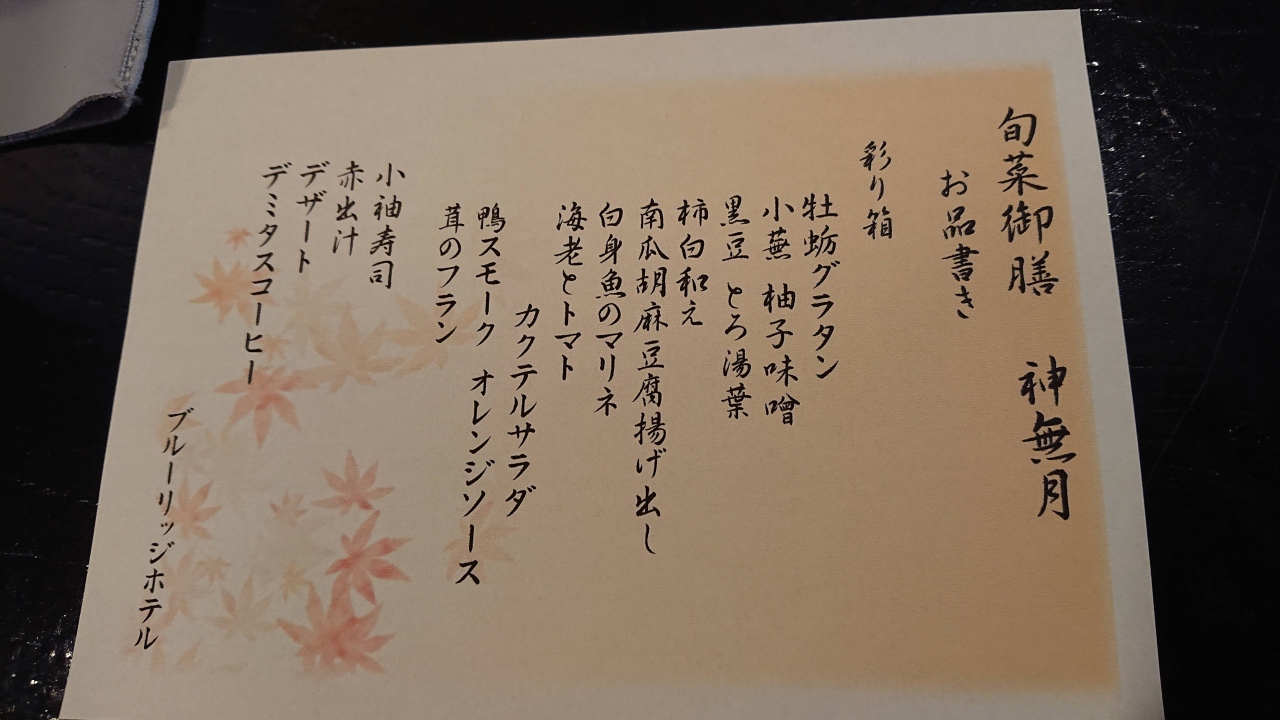 旬菜御膳　神無月
お品書き
彩り箱
牡蛎グラタン
小蕪　柚子味噌
黒豆　とろ湯葉
柿白和え
南瓜胡麻豆腐揚げ出し
白身魚のマリネ
海老とトマト
カクテルサラダ
鴨スモーク　オレンジソース
茸のフラン
小袖寿司
赤出汁
デザート
デミタスコーヒー
ブルーリッジホテル